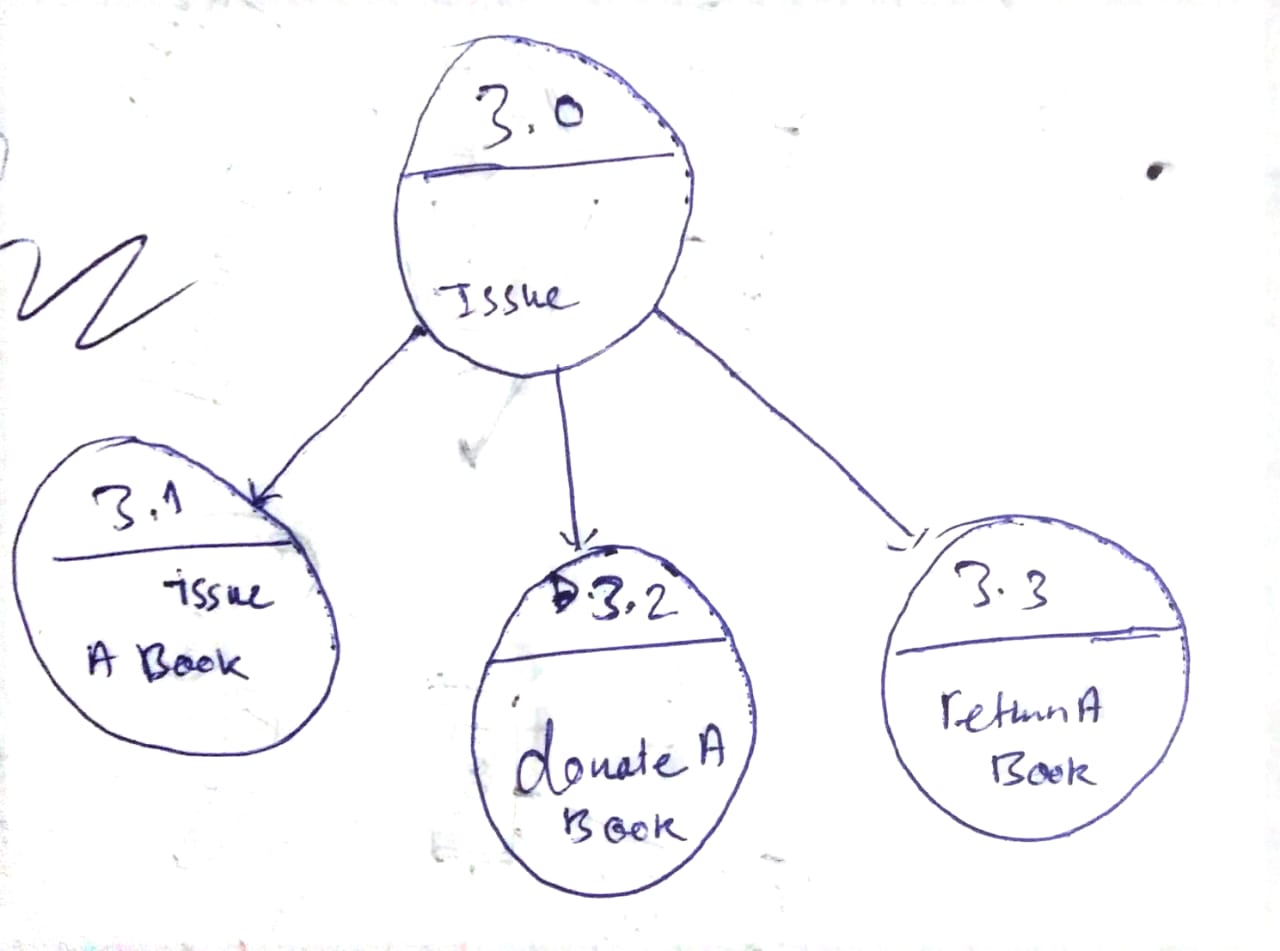 3.0
Issue
3.1
issue
A Book
3.2
donate A
Book
3.3
return A
Book